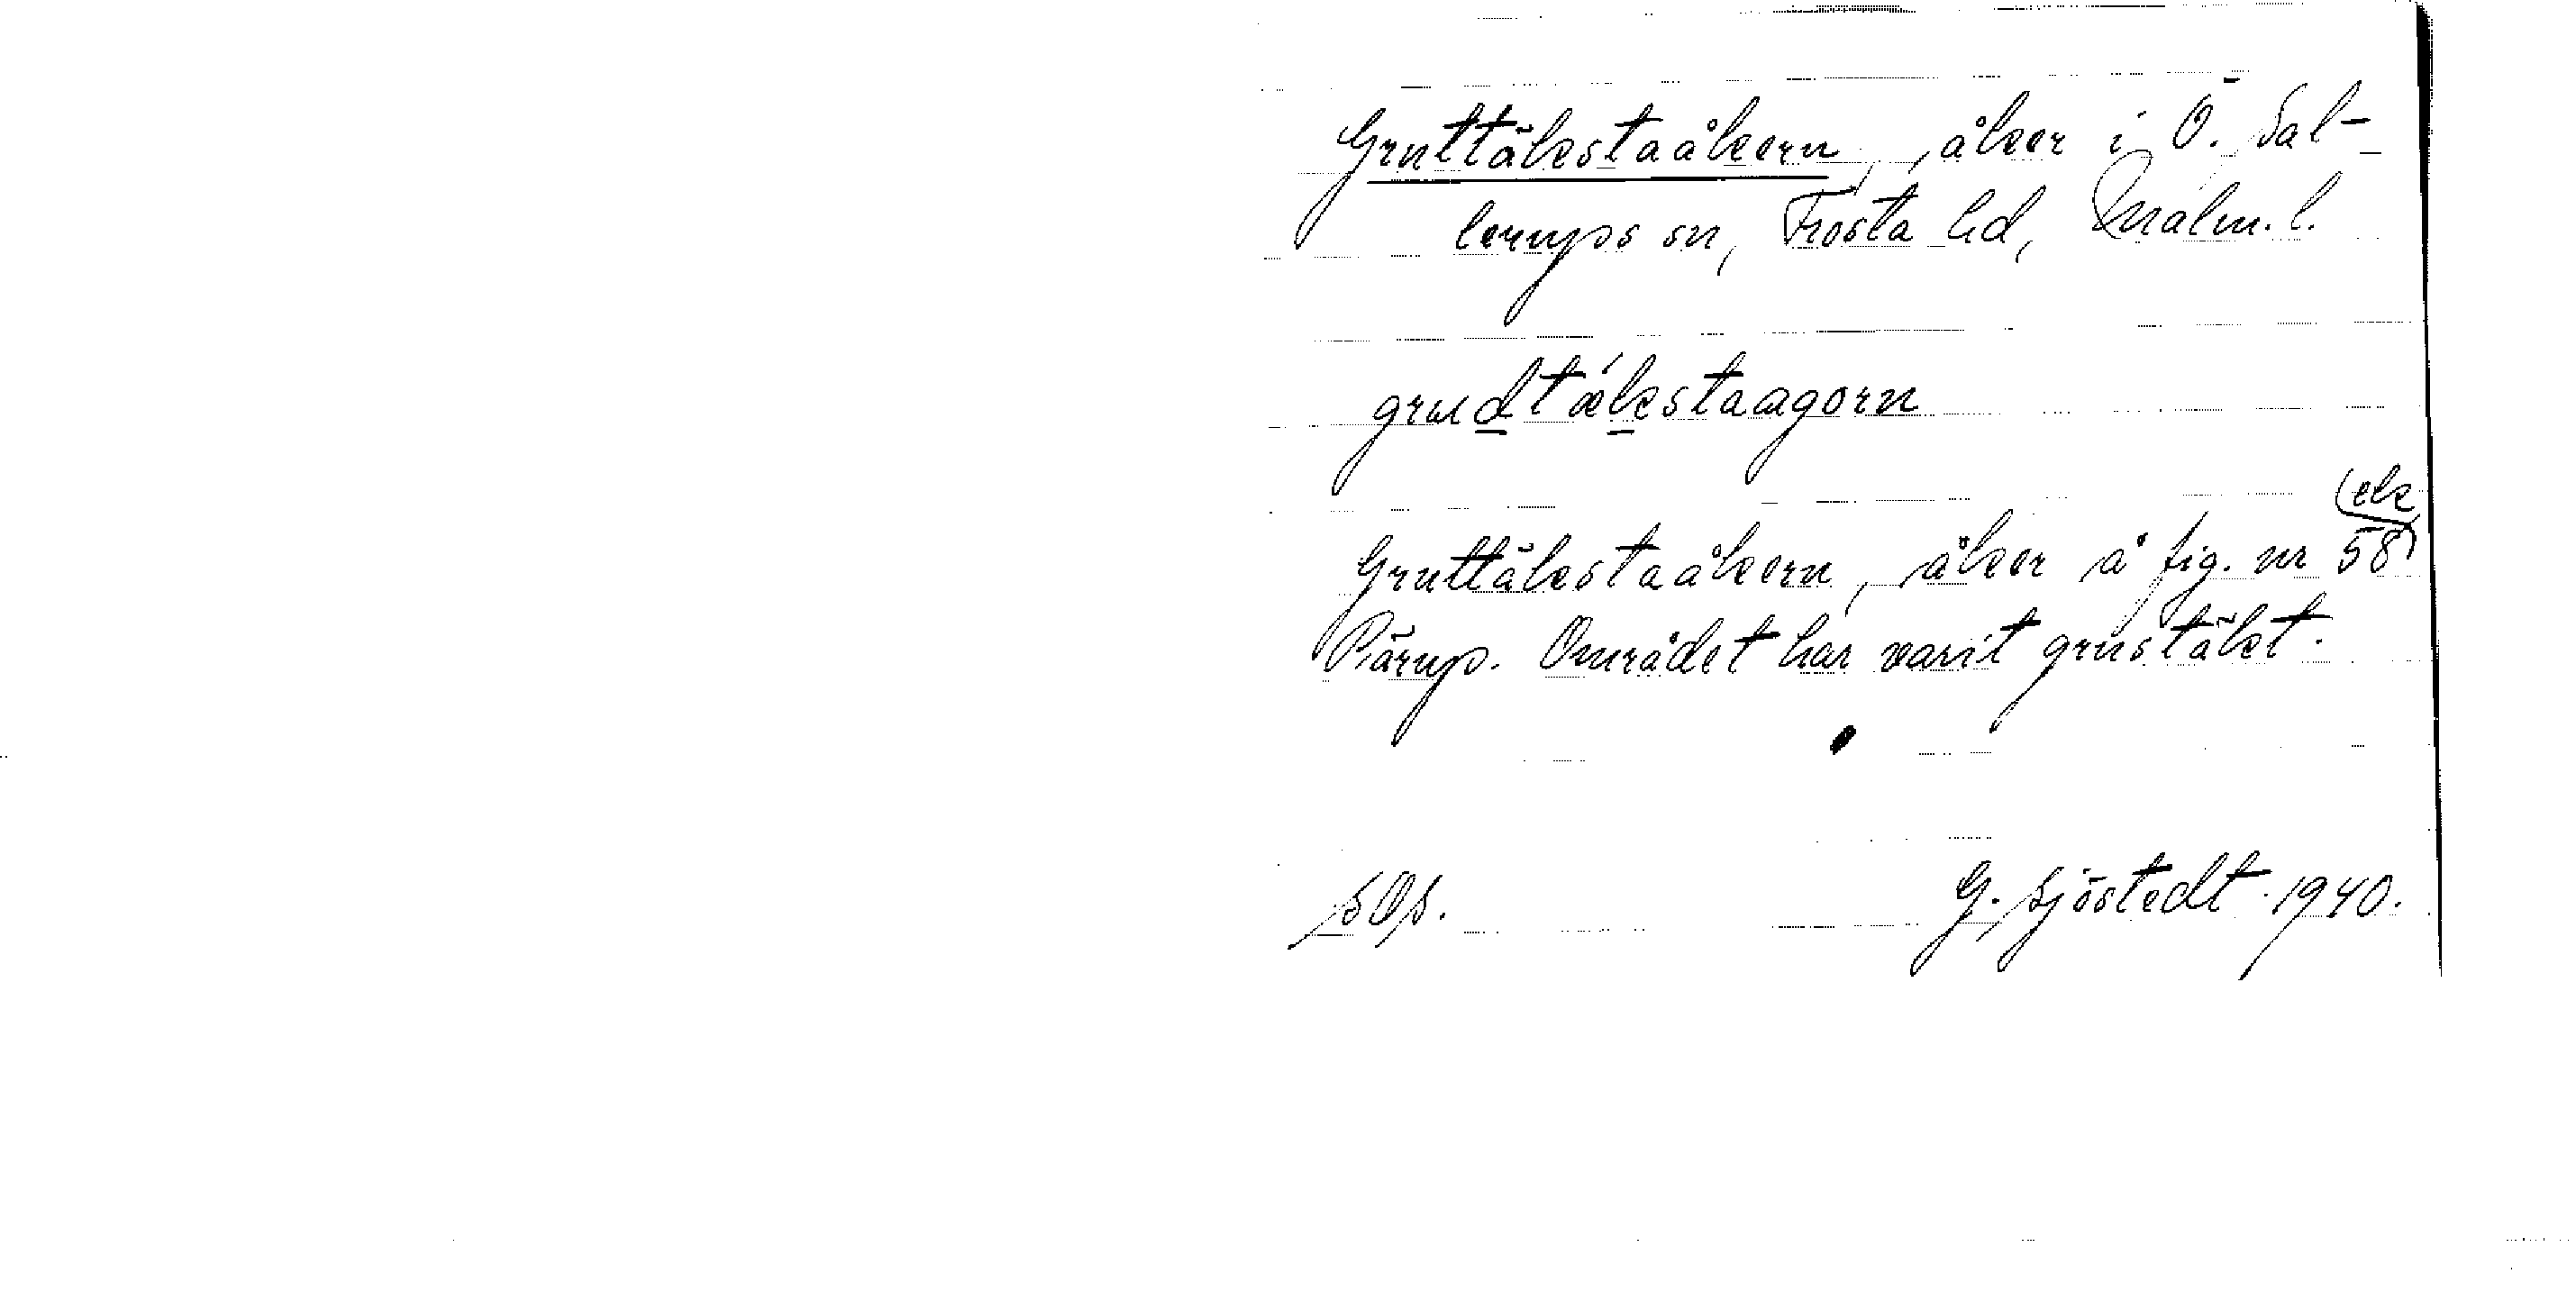 Gruttäkstaåkern, åker i Ö. Sal-
lerups sn, Frosta hd, Malm. l.
grudtækstaagorn
Gruttäkstaåkern, åker å fig. nr 58 (ek
Pärup. Området har varit grustäkt.
G. Sjöstedt 1940.